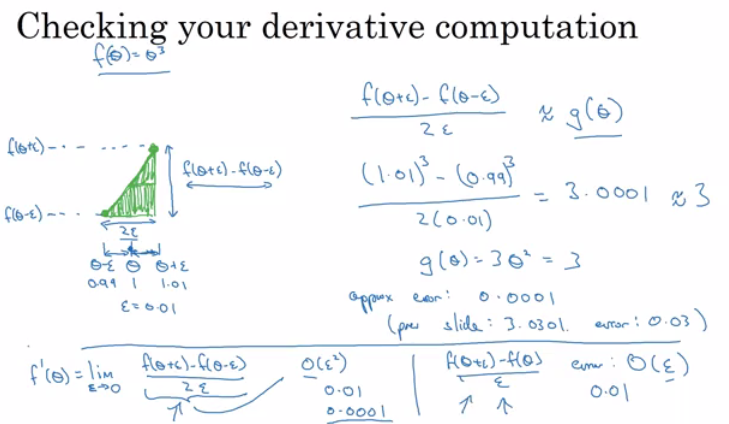 Checking your derivative computation
f(θ) = θ³
f(θ+ε)
f(θ-ε)
f(θ+ε) - f(θ-ε)
2ε
θ-ε θ θ+ε
0.99 1 1.01
ε = 0.01
(f(θ+ε) - f(θ-ε)) / 2ε ≈ g(θ)
((1.01)³ - (0.99)³) / 2(0.01) = 3.0001 ≈ 3
g(θ) = 3θ² = 3
approx error: 0.0001
(prev slide: 3.0301. error: 0.03)
f'(θ) = lim ε→0 (f(θ+ε) - f(θ-ε)) / 2ε
O(ε²)
0.01
0.0001
(f(θ+ε) - f(θ)) / ε
error: O(ε)
0.01